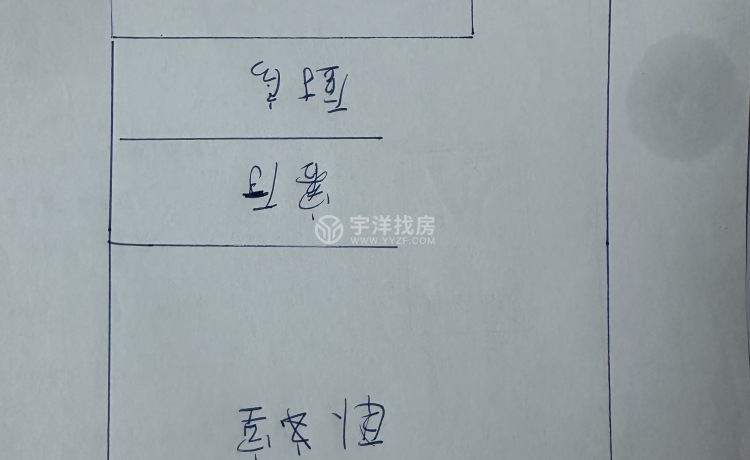 厨房
客厅
宇洋找房
WWW.YYZF.COM
卧室